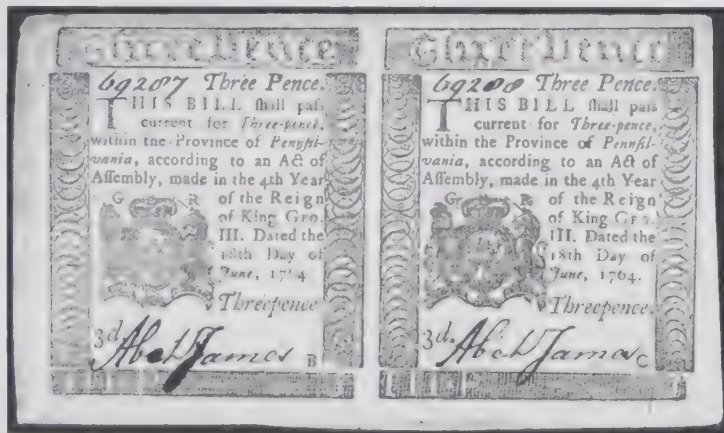 Three Pence
69287 Three Pence.
THIS BILL shall pass
current for Three-pence,
within the Province of Pennsil-
vania, according to an Act of
Assembly, made in the 4th Year
G R of the Reign
of King GEO.
III. Dated the
18th Day of
June, 1764
Threepence
3d. Abel James B
Three Pence
69288 Three Pence.
THIS BILL shall pass
current for Three-pence,
within the Province of Pennsil-
vania, according to an Act of
Assembly, made in the 4th Year
G R of the Reign
of King GEO.
III. Dated the
18th Day of
June, 1764.
Threepence.
3d. Abel James C